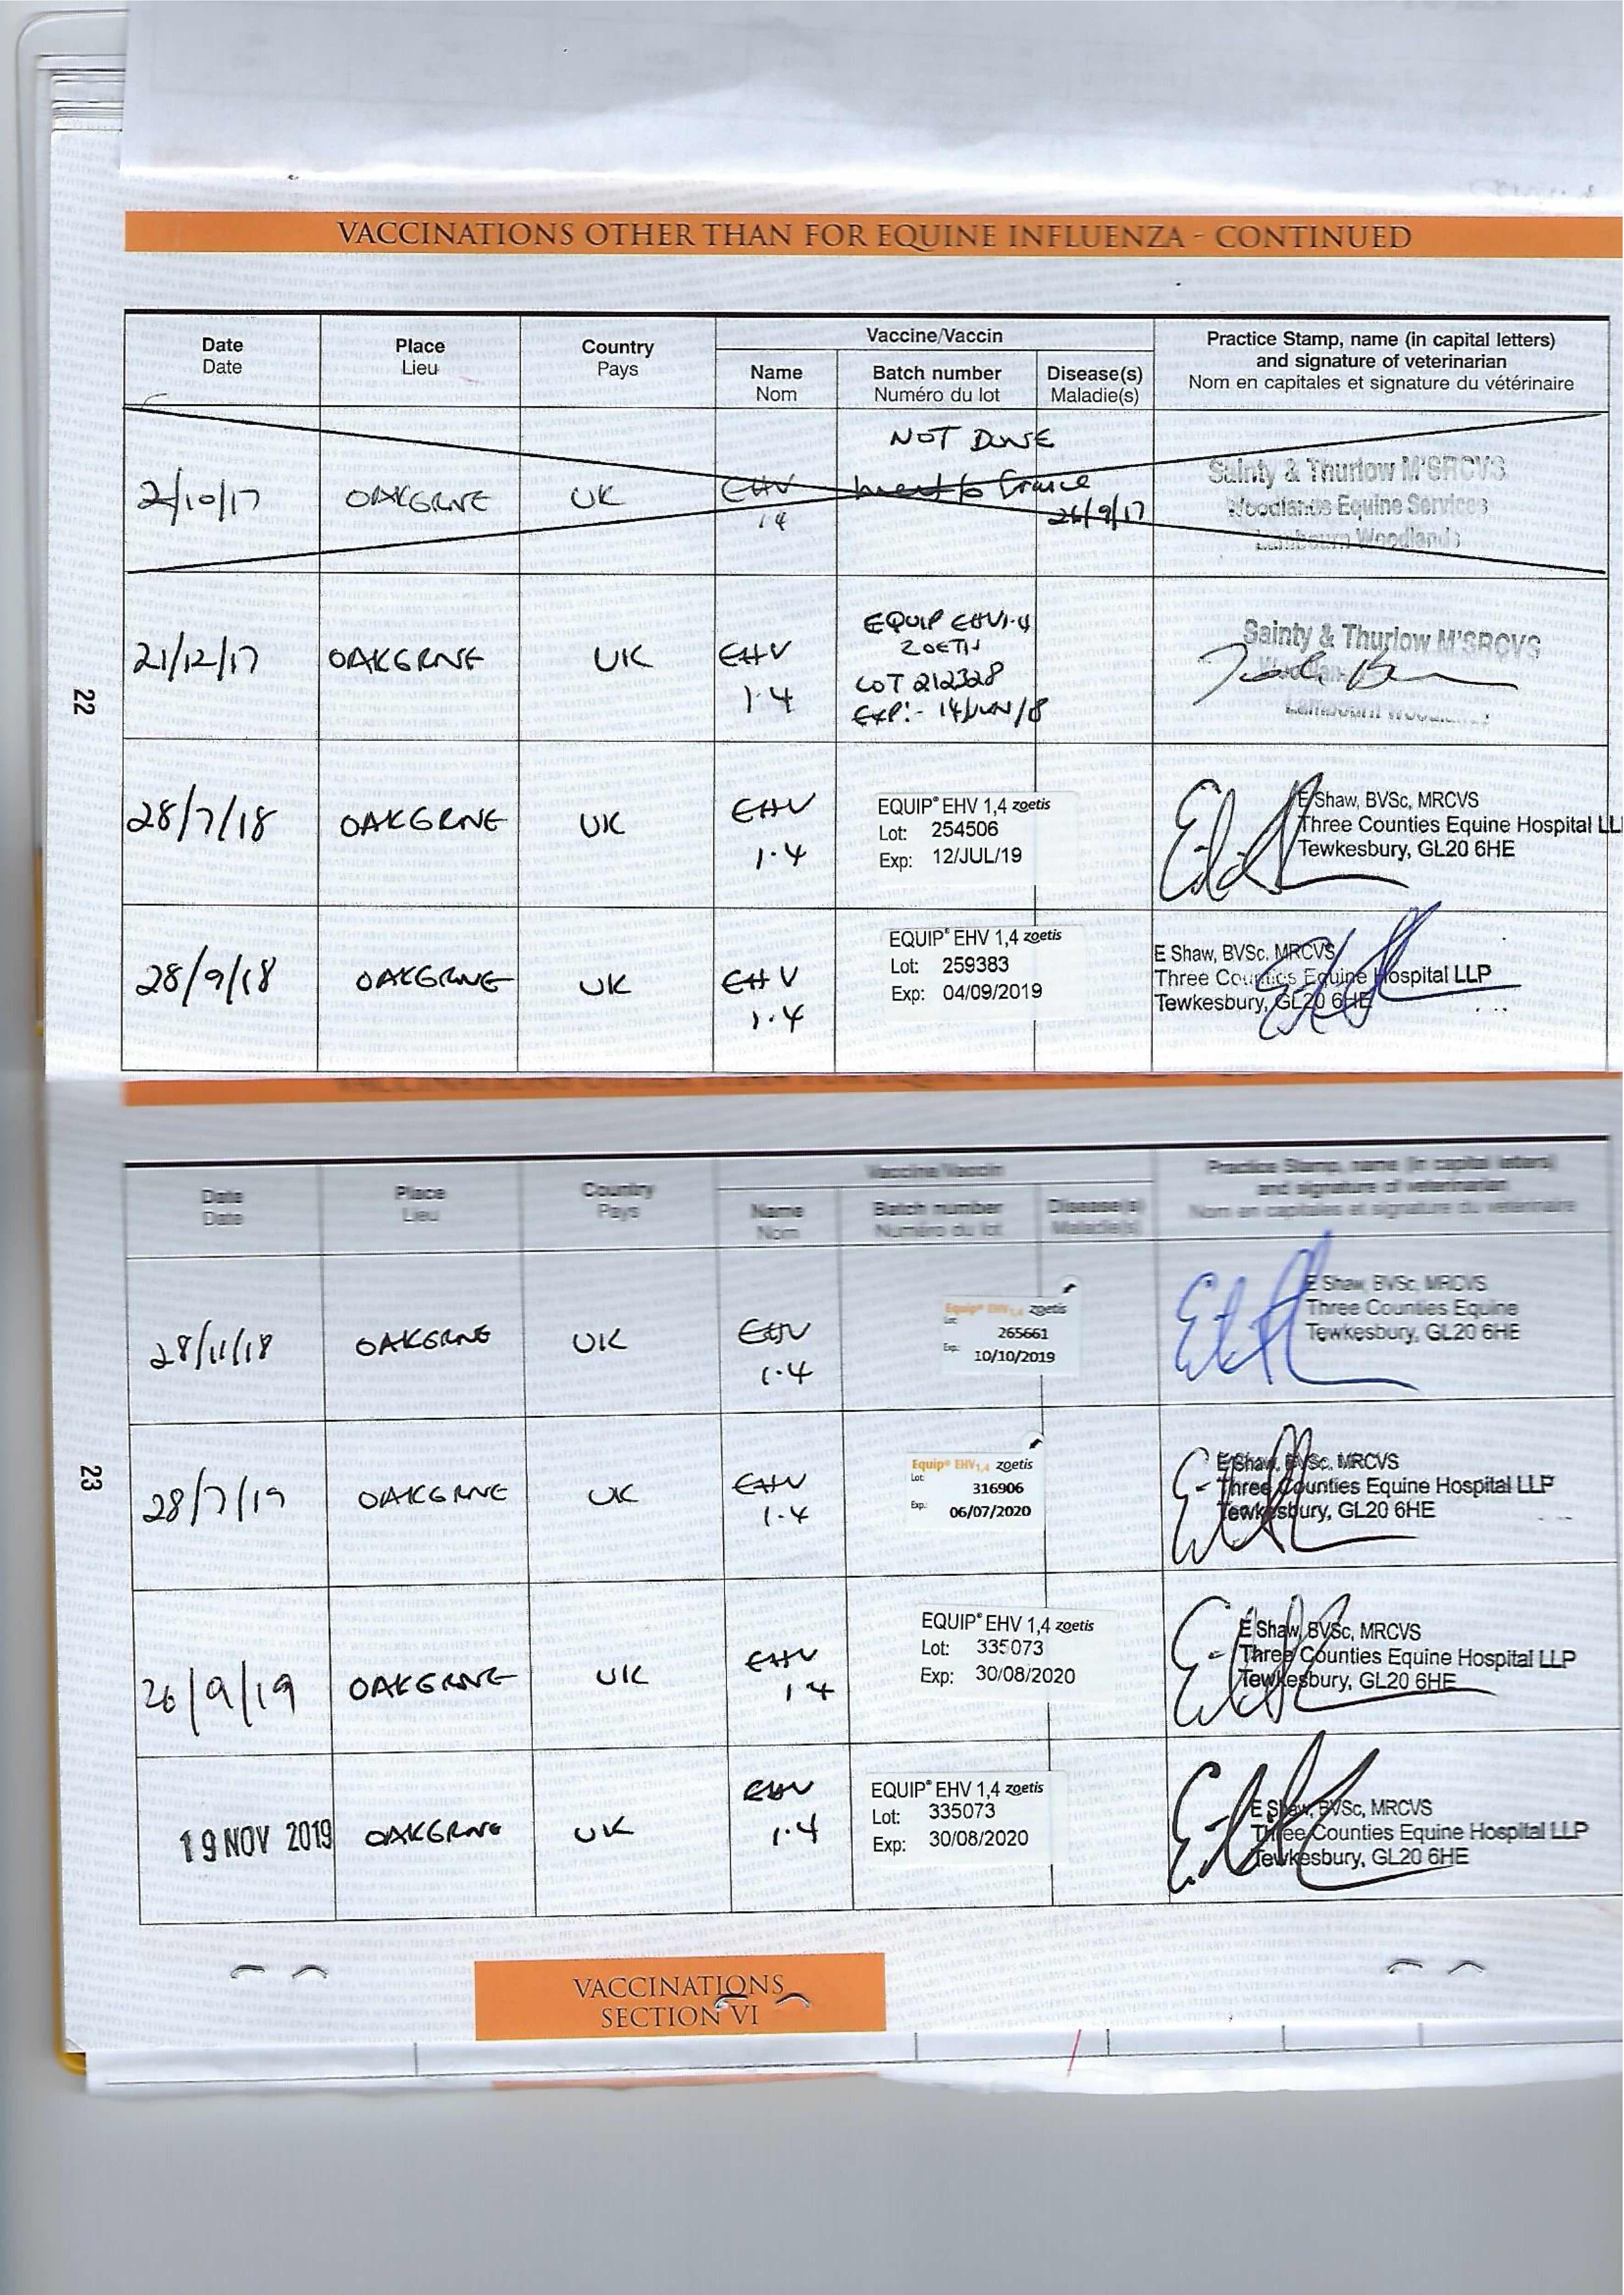 VACCINATIONS OTHER THAN FOR EQUINE INFLUENZA - CONTINUED
Date
Date
Place
Lieu
Country
Pays
Vaccine/Vaccin
Name
Nom
Batch number
Numéro du lot
Disease(s)
Maladie(s)
Practice Stamp, name (in capital letters)
and signature of veterinarian
Nom en capitales et signature du vétérinaire
NOT DONE
2/10/17 OAKGRNE UK EHV went to France
1 4 26/9/17
Sainty & Thurlow M'SRCVS
Woodlands Equine Services
Lambourn Woodlands
21/12/17 OAKGRNE UK EHV
1.4
EQUIP EHV1.4
ZOETIS
LOT 212328
EXP:- 14/JUN/18
Sainty & Thurlow M'SRCVS
Lambourn
22
28/7/18 OAKGRNE UK EHV
1.4
EQUIP® EHV 1,4 zoetis
Lot: 254506
Exp: 12/JUL/19
E Shaw, BVSc, MRCVS
Three Counties Equine Hospital LL
Tewkesbury, GL20 6HE
28/9/18 OAKGRNE UK EHV
1.4
EQUIP® EHV 1,4 zoetis
Lot: 259383
Exp: 04/09/2019
E Shaw, BVSc, MRCVS
Three Counties Equine Hospital LLP
Tewkesbury, GL20 6HE
Date
Date
Place
Lieu
Country
Pays
Vaccine/Vaccin
Name
Nom
Batch number
Numéro du lot
Disease(s)
Maladie(s)
Practice Stamp, name (in capital letters)
and signature of veterinarian
Nom en capitales et signature du vétérinaire
28/11/18 OAKGRNE UK EHV
1.4
Equip® EHV1,4 zoetis
Lot:
265661
Exp: 10/10/2019
E Shaw, BVSc, MRCVS
Three Counties Equine
Tewkesbury, GL20 6HE
23
28/7/19 OAKGRNE UK EHV
1.4
Equip® EHV1,4 zoetis
Lot:
316906
Exp: 06/07/2020
E Shaw, BVSc, MRCVS
Three Counties Equine Hospital LLP
Tewkesbury, GL20 6HE
26/9/19 OAKGRNE UK EHV
1 4
EQUIP® EHV 1,4 zoetis
Lot: 335073
Exp: 30/08/2020
E Shaw, BVSc, MRCVS
Three Counties Equine Hospital LLP
Tewkesbury, GL20 6HE
19 NOV 2019 OAKGRNE UK EHV
1.4
EQUIP® EHV 1,4 zoetis
Lot: 335073
Exp: 30/08/2020
E Shaw, BVSc, MRCVS
Three Counties Equine Hospital LLP
Tewkesbury, GL20 6HE
VACCINATIONS
SECTION VI